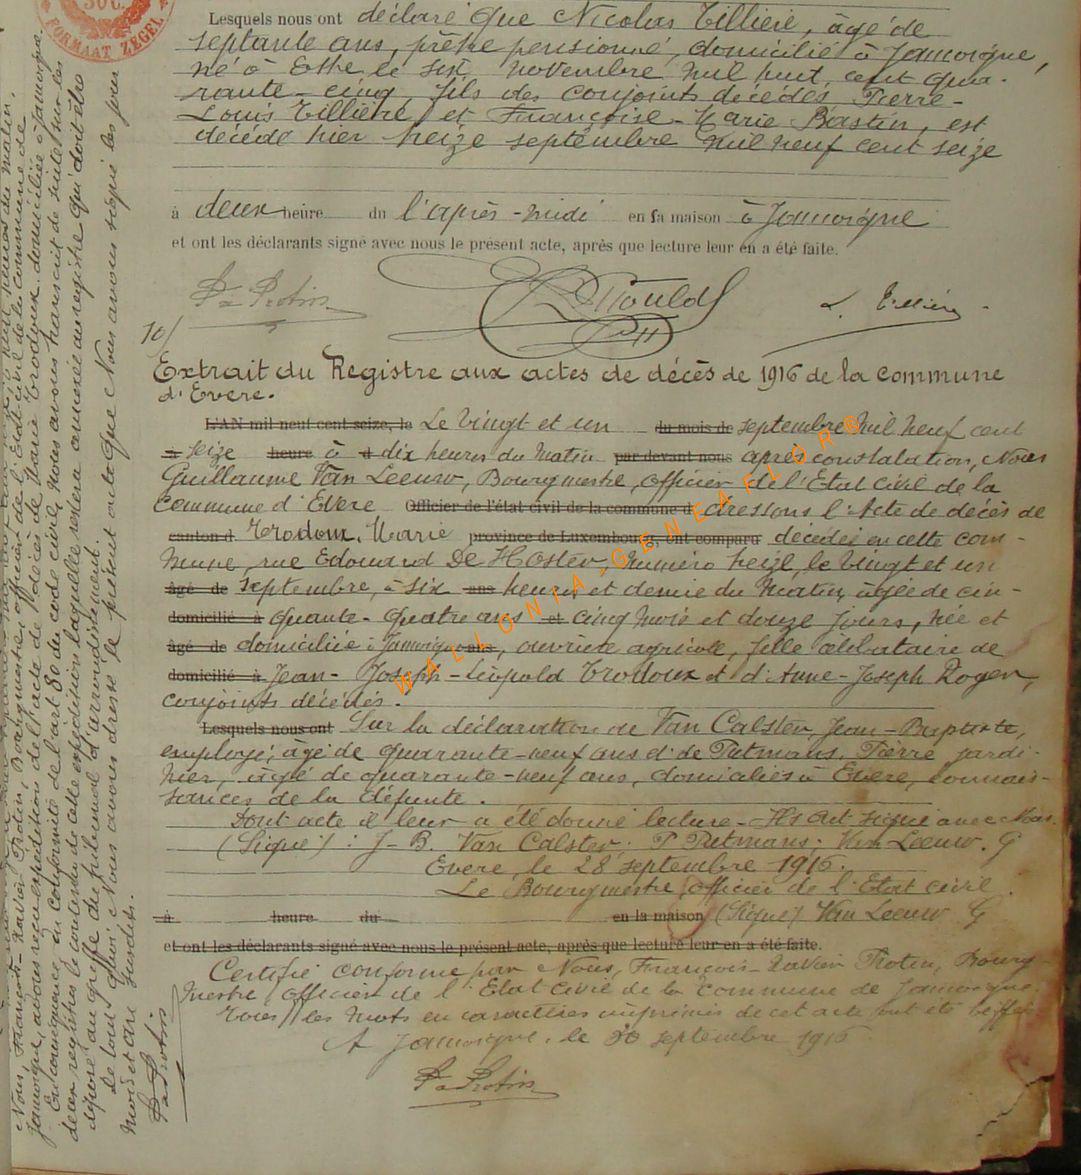 50 C.
FORMAAT ZEGEL
Lesquels nous ont déclaré que Nicolas Tillière, âgé de
septante ans, prêtre pensionné, domicilié à Jamoigne,
né à Ethe le six novembre mil huit cent qua-
rante-cinq fils des conjoints décédés Pierre-
Louis Tillière et Françoise-Marie Bastin, est
décédé hier treize septembre mil neuf cent seize
à deux heure du l'après-midi en sa maison à Jamoigne
et ont les déclarants signé avec nous le présent acte, après que lecture leur en a été faite.
10/
Extrait du Registre aux actes de décès de 1916 de la commune
d'Evere.
L'AN mil neuf cent seize, le Le vingt et un du mois de septembre mil neuf cent
à seize heure à d dix heures du matin par devant nous après constatation, Nous
Guillaume Van Leeuw, Bourgmestre, officier de l'Etat civil de la
commune d'Evere Officier de l'état civil de la commune d dressons l'Acte de décès de
canton d Trodoux, Marie province de Luxembourg, ont comparu décédée en cette com-
mune, rue Edouard De numéro treize, le vingt et un
âgé de septembre, à six ans heures et demie du matin, âgée de cin-
domicilié à quante-quatre ans et cinq mois et douze jours, née et
âgé de domiciliée à Jamoigne ans, ouvrière agricole, fille célibataire de
domicilié à Jean-Joseph-Léopold Trodoux et d'Anne-Joseph Roger,
conjoints décédés.
Lesquels nous ont Sur la déclaration de Van Calster, Jean-Baptiste,
employé, âgé de quarante-neuf ans et de Putmans, Pierre jardi-
nier, âgé de quarante-neuf ans, domiciliés à Evere, connais-
sances de la défunte.
Dont acte il leur a été donné lecture. Ils ont signé avec Nous.
(Signé) : J-B. Van Calster; P Putmans; Van Leeuw. G
Evere, le 28 septembre 1916.
Le Bourgmestre, officier de l'Etat civil.
à heure du en la maison (Signé) Van Leeuw G
et ont les déclarants signé avec nous le présent acte, après que lecture leur en a été faite.
Certifié conforme par Nous, François-Xavier Protin, Bourg-
mestre, Officier de l'Etat civil de la commune de Jamoigne.
Tous les mots en caractères imprimés de cet acte ont été biffés
A Jamoigne, le 30 septembre 1916
Nous, François-Xavier Protin, Bourgmestre, officier de l'Etat civil de la commune de
Jamoigne, avons reçu expédition de l'acte de décès de Marie Trodoux, domiciliée à Jamoigne.
En conséquence, en conformité de l'art 80 du code civil, nous avons transcrit de suite sur les
deux registres le contenu de cette expédition laquelle restera annexée au registre qui doit être
déposé au greffe du tribunal d'arrondissement.
De tout quoi Nous avons dressé le présent acte que Nous avons signé les jour
mois et an susdits.
WALLONIA-GENEAFLOR®